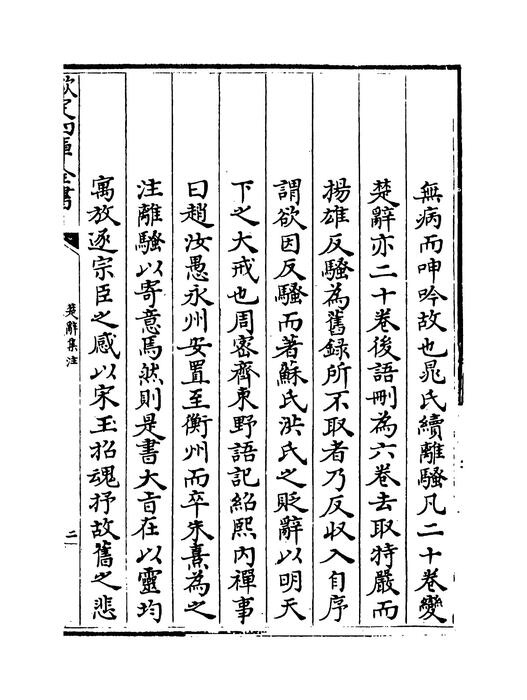 無病而呻吟故也晁氏續離騷凡二十卷變
楚辭亦二十卷後語刪為六卷去取特嚴而
揚雄反騷為舊録所不取者乃反収入自序
謂欲因反騷而著蘇氏洪氏之貶辭以明天
下之大戒也周宻齊東野語記紹熙内禪事
曰趙汝愚永州安置至衡州而卒朱熹為之
注離騷以寄意焉然則是書大旨在以靈均
寓放逐宗臣之感以宋玉招魂抒故舊之悲
欽定四庫全書
楚辭集注
二